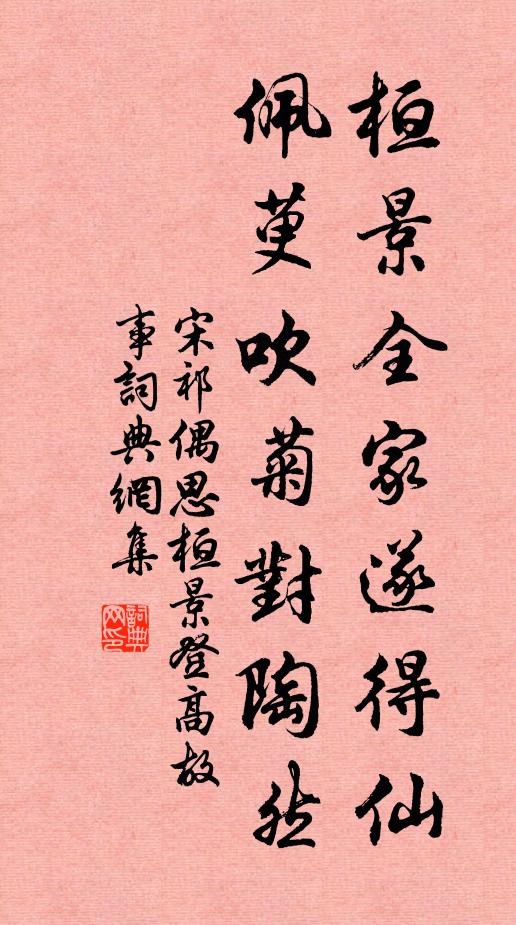 桓景全家遂得仙
佩萸吹菊對陶然
宋祁偶思桓景登高故
事詞典網集
詞典
网印